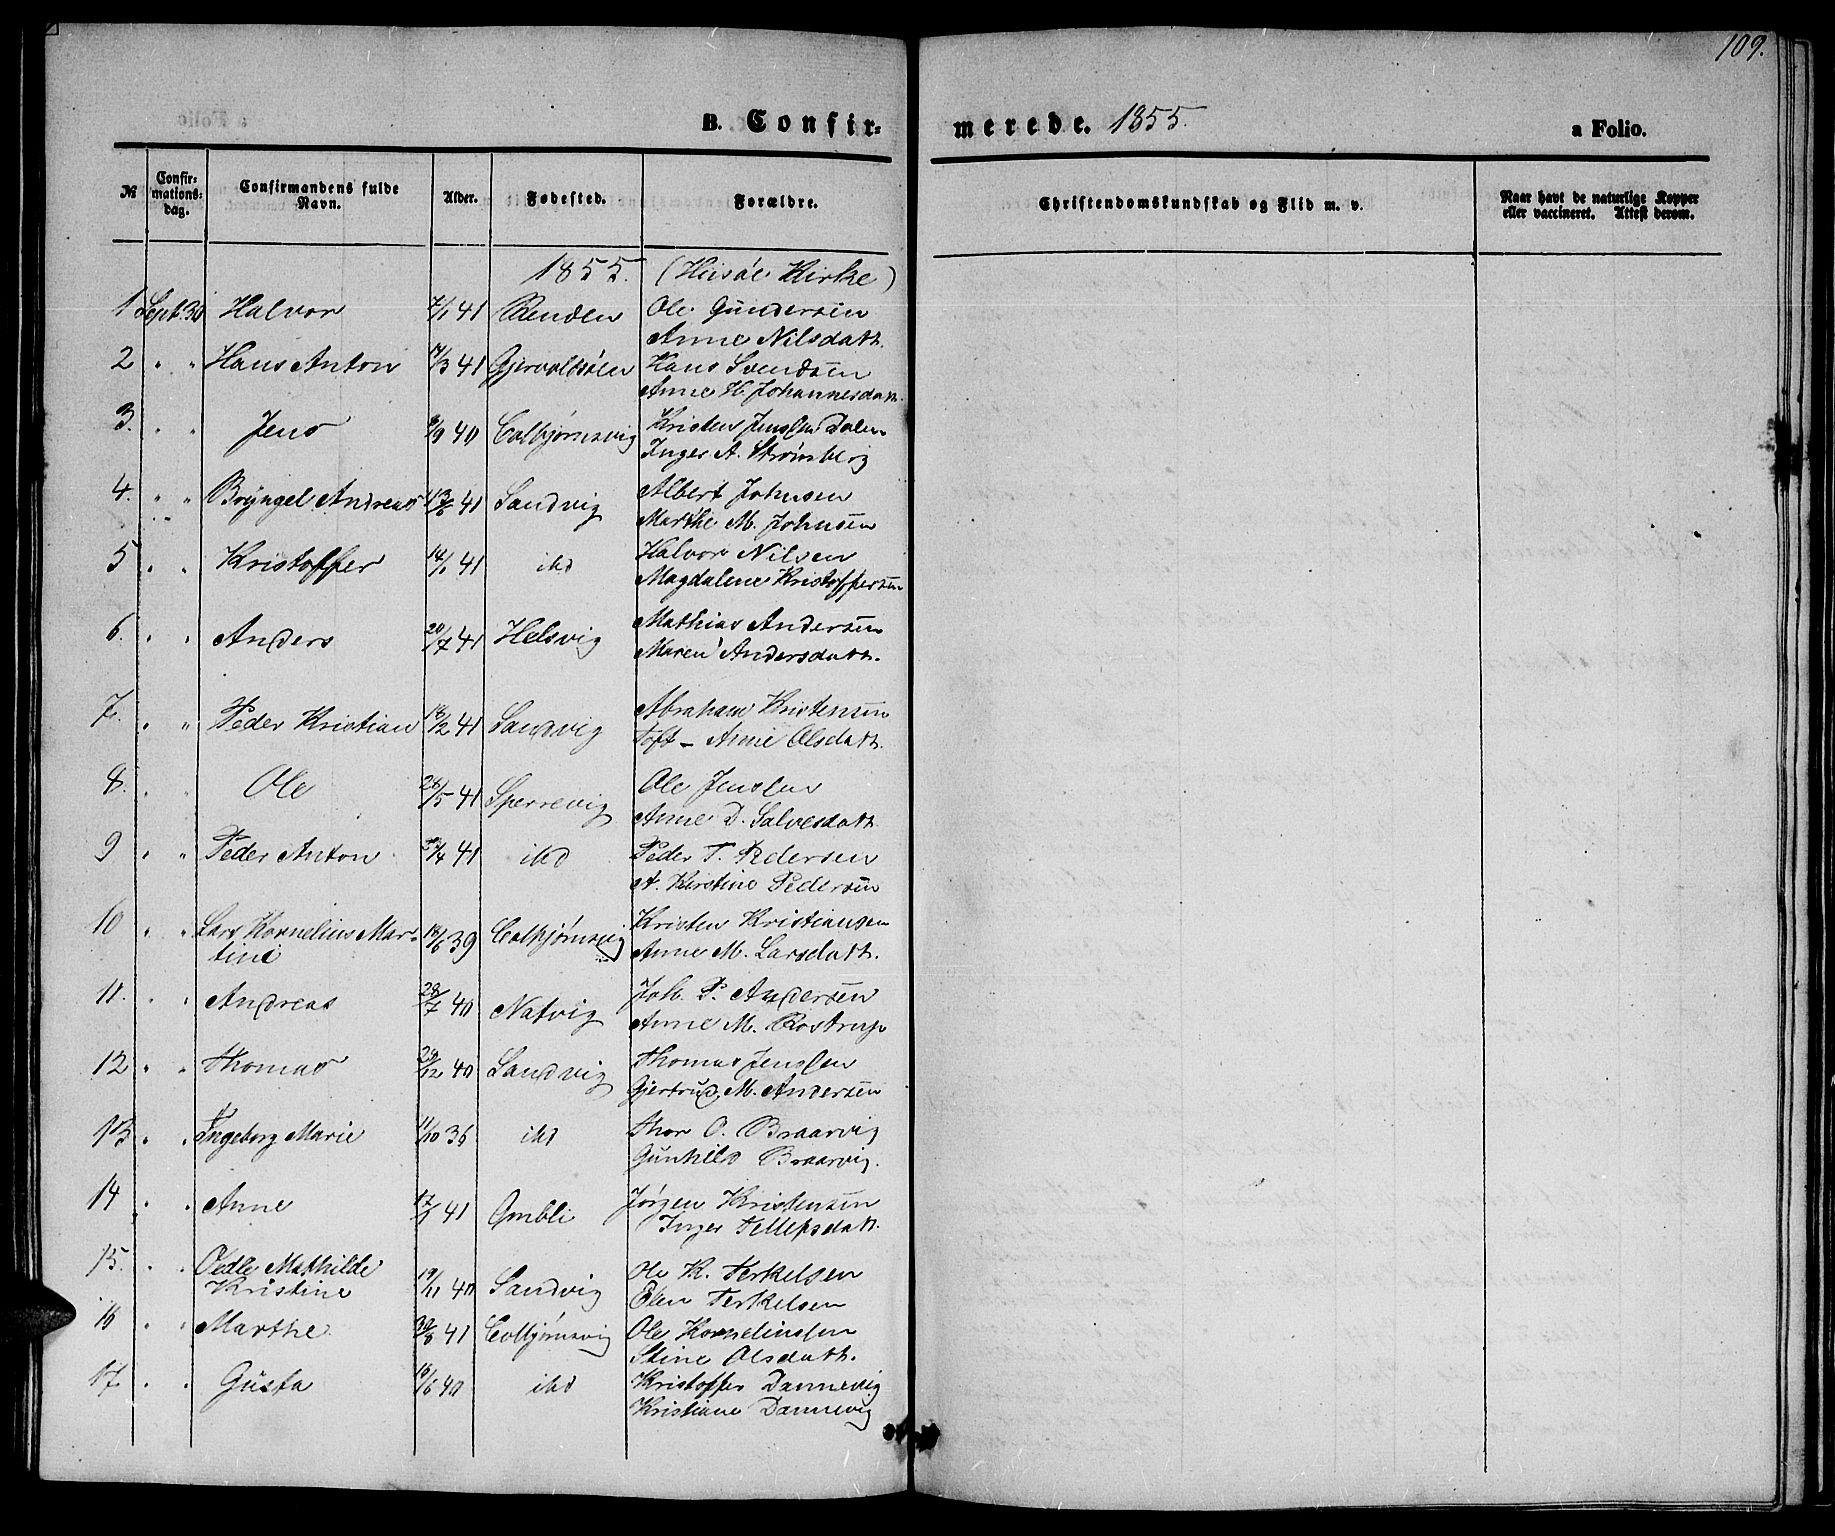 109.
B. Confir-
merede. 1855.
a Folio.
№ Confir-mations-dag. Confirmandens fulde Navn. Alder. Fødested. Forældre.
Christendomskundskab og Flid m. v.
Naar havt de naturlige Kopper eller vaccineret. Attest derom.
1855. (Hisöe Kirke)
1 Sept. 30 Halvor 7/1 41 Renden Ole Gundersen
Anne Nilsdatt.
2 " " Hans Anton 17/3 41 Gjervoldsöen Hans Svendsen
Anne H. Johannesdatt.
3. " " Jens 9/9 40 Colbjörnsvig Kristen Jensen Dalen
Inger A. Strömberg
4. " " Bryngel Andreas 13/6 41 Sandvig Albert Johnsen
Marthe M. Johnsen
5 " " Kristoffer 14/1 41 ibd Halvor Nilsen
Magdalene Kristoffersen
6. " " Anders 20/7 41 Helsvig Mathias Andersen
Maren Andersdatt.
7. " " Peder Kristian 18/2 41 Sandvig Abraham Kristensen
Toft - Anne Olsdatt.
8. " " Ole 28/5 41 Sperrevig Ole Jensen
Anne D. Salvesdatt.
9 " " Peder Anton /4 41 ibd Peder T. Pedersen
A. Kirstine Pedersen
10 " " Lars Kornelius Mar- 18/6 39 Colbjörnsvig Kristen Kristiansen
tini Anne M. Larsdatt.
11. " " Andreas 28/7 40 Natvig Joh. P. Andersen
Anne M. Rostrup
12 " " Thomas 29/12 40 Sandvig Thomas Jensen
Gjertrud M. Andersen
13 " " Ingeborg Marie 11/10 36 ibd Thor O. Braarvig
Gunhild Braarvig.
14 " " Anne 17/1 41 Gmbli Jörgen Kristensen
Inger Tellefsdatt.
15. " " Oedle Mathilde Ole K. Terkelsen
Kristine 19/11 40 Sandvig Elen Terkelsen
16 " " Marthe 30/8 41 Colbjörnsvig Ole Kornelinssen
Stine Olsdatt.
17. " " Gusta 16/6 40 ibd Kristoffer Dannevig
Kristiane Dannevig